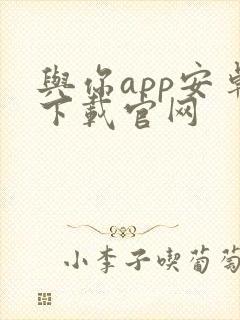 與你app安卓
下載官网
小李子喫葡萄